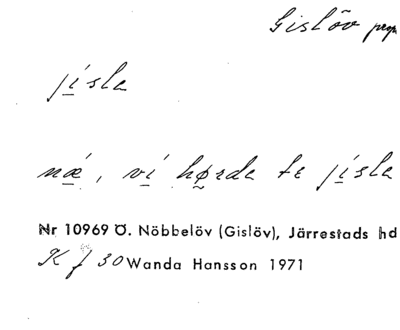 Gislöv
jísla
nǽ, ví hørde te jísla
Nr 10969 Ö. Nöbbelöv (Gislöv), Järrestads hd
K f 30 Wanda Hansson 1971